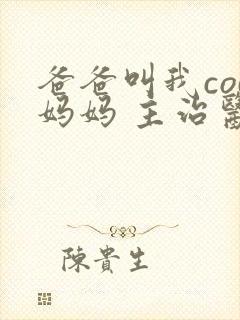 爸爸叫我co
妈妈 主治
陳貴生